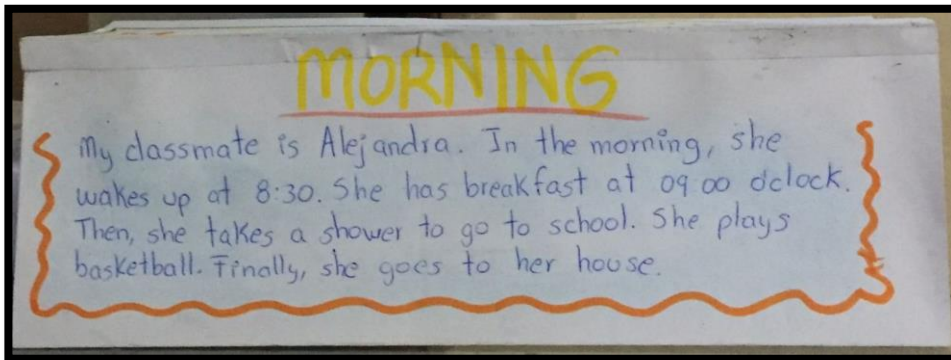 MORNING
My classmate is Alejandra. In the morning, she
wakes up at 8:30. She has breakfast at 09:00 o'clock.
Then, she takes a shower to go to school. She plays
basketball. Finally, she goes to her house.